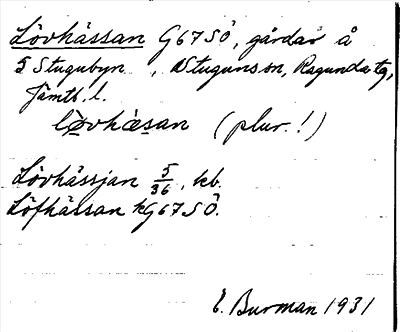 Lövhässan G67SÖ, gårdar å
5 Stugubyn, Stuguns sn, Ragunda tg,
Jämtl. l.
lövhäsan (plur.!)
Lövhässjan 5/36, kb.
Löfhässan kG67SÖ.
E. Burman 1931